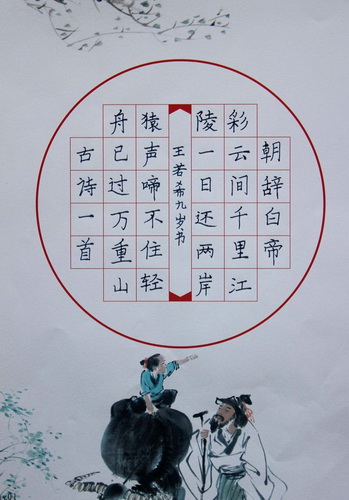 朝辞白帝
彩云间千里江
陵一日还两岸
王若希九岁书
猿声啼不住轻
舟已过万重山
古诗一首